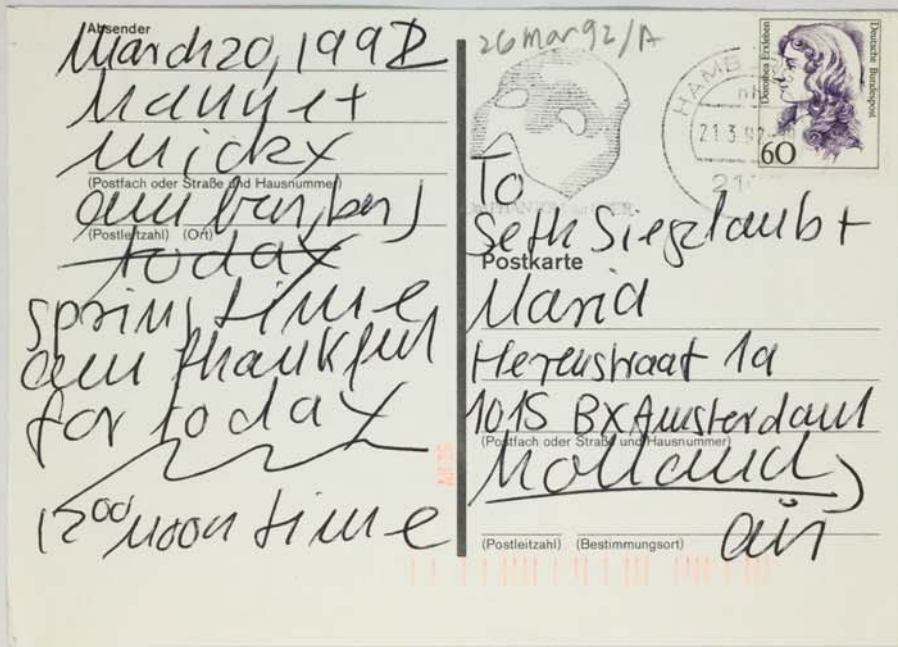 Absender
March 20, 1992
(Postfach oder Straße und Hausnummer)
(Postleitzahl) (Ort)
today
spring time
am thankful
for today
12⁰⁰ noon time
26 Mar 92/A
HAMB
21.3.92
21
Dorothea Erxleben
Deutsche Bundespost
60
To
Seth Siegelaub +
Postkarte
Marid
Herenstraat 1a
1015 BX Amsterdam
(Postfach oder Straße und Hausnummer)
Holland
(Postleitzahl) (Bestimmungsort)
air